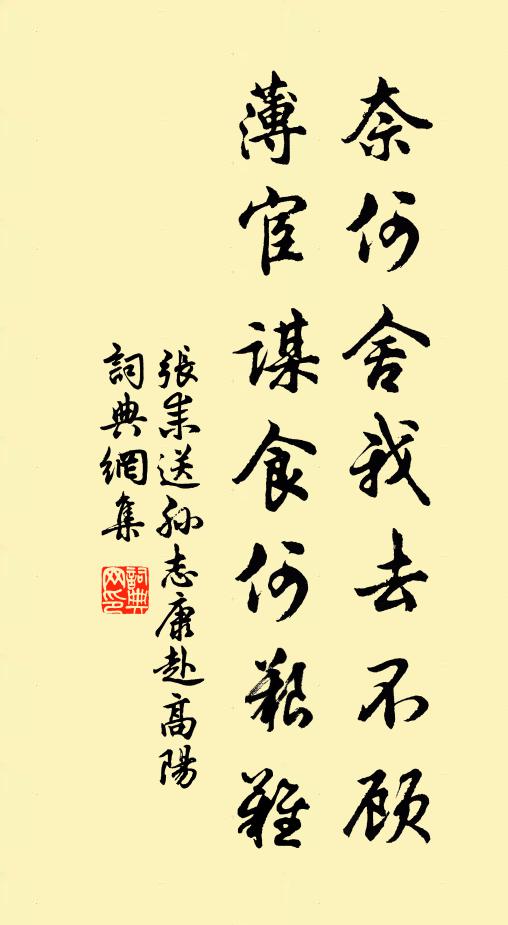 奈何舍我去不顾
薄宦谋食何艱難
張耒送孙志康赴高陽
詞典網集
詞典网印